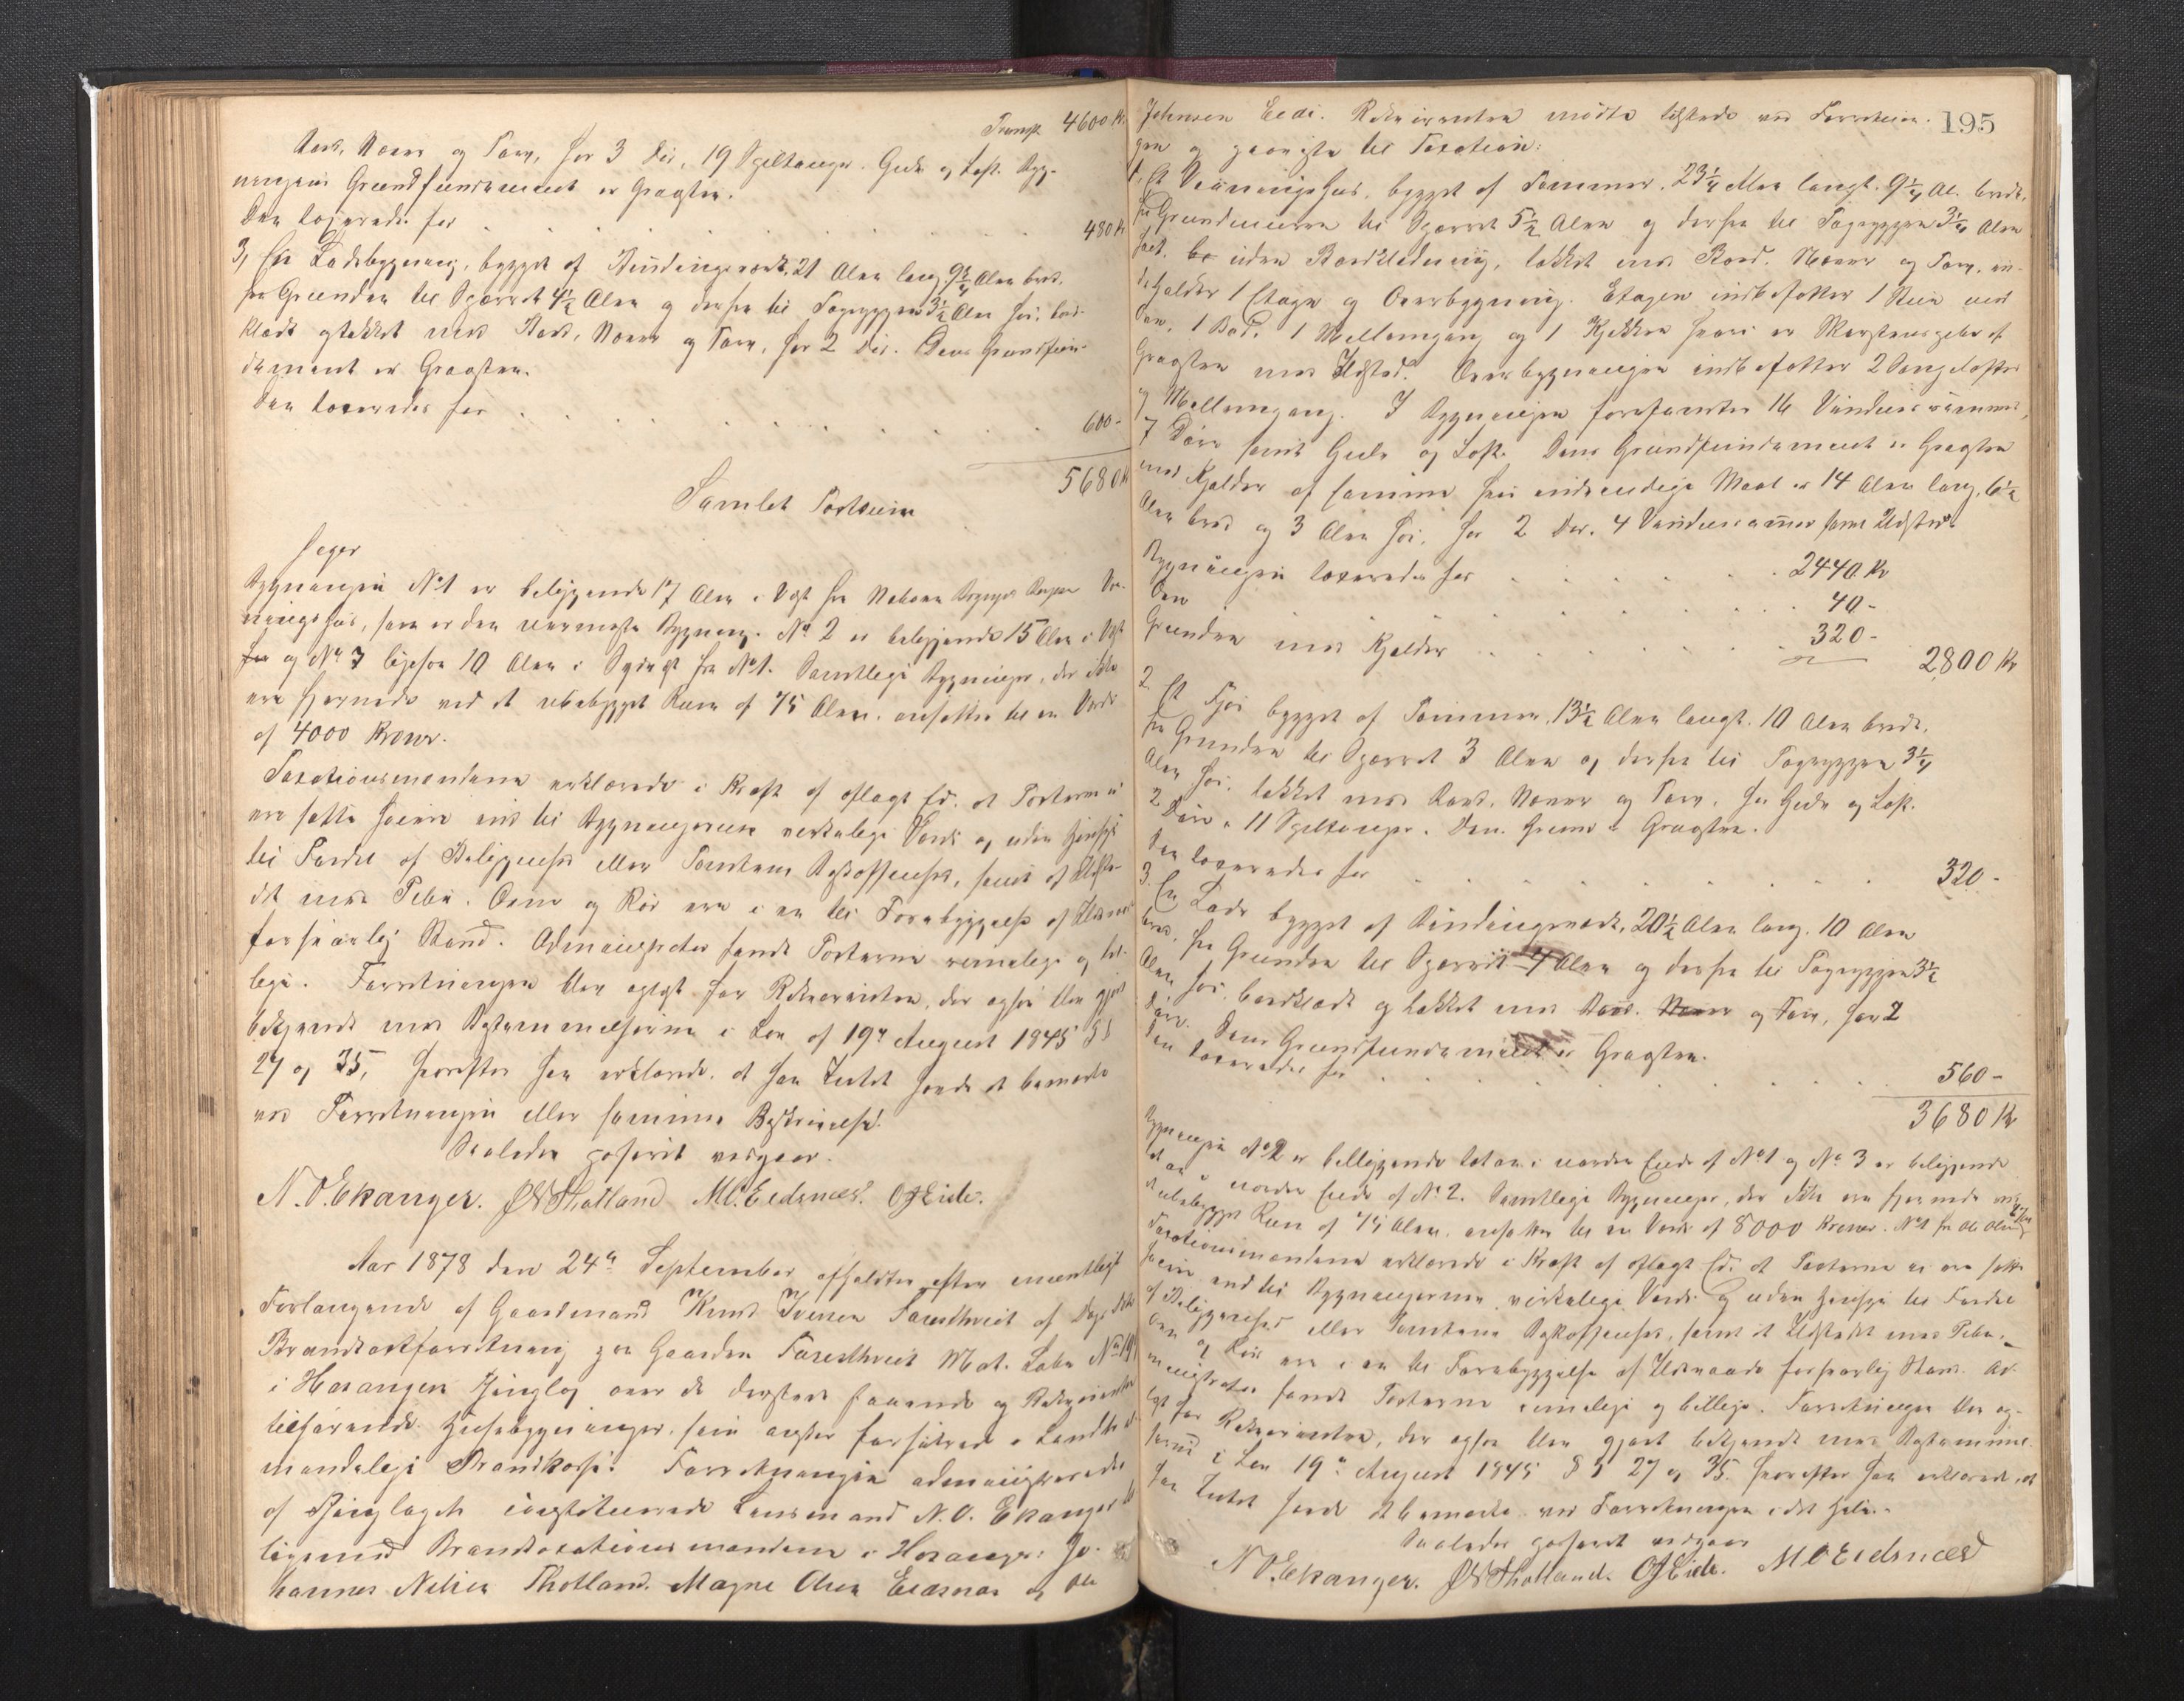 Transp. 4600 Kr
Bord, Næver og Torv, har 3 Dör, 19 Spiltauger. Gulv og Loft. Byg-
ningens Grundfundament er Graasten.
Den taxeredes for . . . . . . . . 480 Kr
3, En Ladebygning, bygget af Bindingsværk, 21 Alen lang, 9 3/4 Alen bred,
fra Grunden til Sparret 4 1/2 Alen og derfra til Tagryggen 3 1/2 Alen høi, bord-
klædt og tækket med Bord, Næver og Torv, har 2 Dör. Dens Grundfun-
dament er Graasten.
Den taxeredes for . . . . . . . . 600 -
5680 Kr
Samlet Taxtsum
Bygningen No 1 er beliggende 17 Alen i Vest fra Naboen Væ-
ningshus, som er den nærmeste Bygning. No 2 er beliggende 15 Alen i Vest
og No 3 ligesom 10 Alen i Sydvest fra No 1. Samtlige Bygninger, der ikke
ere fjernede ved et ubebygget Rum af 75 Alen, ansættes til en Værdi
af 4000 Kroner.
Taxationsmændene erklærede i Kraft af aflagt Ed, at Taxterne ei
ere satte høiere end til Bygningernes virkelige Værdi og uden Hensyn
til Fordel af Beliggenhed eller Tomtens Beskaffenhed, samt at Ildste-
det med Pibe, Ovne og Rör ere i en til Forebyggelse af Ildsvaade
forsvarlig Stand. Administrator fandt Taxterne rimelige og bil-
lige. Forretningen blev oplæst for Rekvirenten, der ogsaa blev gjort
bekjendt med Bestemmelserne i Lov af 19de August 1845 §§
27 og 35, hvorefter han erklærede, at han Intet havde at bemærke
ved Forretningen eller samme Beskrivelse.
Saaledes passeret vidgaar.
N. O. Ekanger. JNThotland M.O.Eidsnæs. OJEide.
Aar 1878 den 24de September afholdtes efter mundtligt
Forlangende af Gaardmand Knud Iversen Farestveit af Dags Dato
Brandtaxtforretning paa Gaarden Farestveit Mat. Løbe No 19
i Hosanger Thinglag over de dersteds staaende og Rekvirenten
tilhørende Husebygninger, som agtes forsikrede i Landdi-
stands almindelige Brandkasse. Forretningen administreredes
af Thinglagets constituerede Lensmand N. O. Ekanger til-
ligemed Brandtaxationsmændene i Hosanger: Jo-
hannes Nilsen Thotland, Magne Olsen Eidsnæs og Ole
195
Johnsen Eide. Rekvirenten mödte tilstede ved Forretnin-
gen og paaviste til Taxation:
1. Et Vaaningshus, bygget af Tømmer, 23 1/4 Alen langt, 9 1/4 Al. bredt,
fra Grundmuren til Sparret 5 1/2 Alen og derfra til Tagryggen 3 1/4 Alen
høit, uden Bordklædning, tækket med Bord, Næver og Torv, in-
deholder 1 Etage og Overbygning. Etagen indbefatter 1 Stue med
Ovn, 1 Bod, 1 Mellemgang og 1 Kjøkken hvori er Skorstenspibe af
Graasten med Ildsted. Overbygningen indbefatter 2 Sengelofter
og Mellemgang. I Bygningen forefandtes 16 Vinduesrammer,
7 Döre samt Gulv og Loft. Dens Grundfundament er Graasten
med Kjælder af samme hvis indvendige Maal er 14 Alen lang, 6 1/2
Alen bred og 3 Alen høi, har 2 Dör, 4 Vinduesrammer samt Ildsted.
Bygningen taxeredes for . . . . . 2440 Kr
Ovn . . . . . 40 -
Grunden med Kjelder . . . . . 320 -
2800 Kr
2. Et Fjös bygget af Tømmer, 13 1/2 Alen langt, 10 Alen bredt,
fra Grunden til Sparret 3 Alen og derfra til Tagryggen 3 1/4
Alen høi, tækket med Bord, Næver og Torv, har Gulv og Loft,
2 Döre, 11 Spiltauger. Dens Grund er Graasten.
Den taxeredes for . . . . . 320 -
3. En Lade bygget af Bindingsværk, 20 1/2 Alen lang, 10 Alen
bred, fra Grunden til Sparret 4 Alen og derfra til Tagryggen 3 1/2
Alen høi, bordklædt og tækket med Bord, Næver og Torv, har 2
Döre. Dens Grundfundament er Graasten.
Den taxeredes for . . . . . 560 -
3680 Kr
Bygningen No 2 er beliggende tæt an i nordre Ende af No 1 og No 3 er beliggende
tæt an i nordre Ende af No 2. Samtlige Bygninger, der ikke ere fjernede ved
et ubebygget Rum af 75 Alen, ansættes til en Værdi af 8000 Kroner.
Taxationsmændene erklærede i Kraft af aflagt Ed, at Taxterne ei ere satte
høiere end til Bygningernes virkelige Værdi og uden Hensyn til Fordel
af Beliggenhed eller Tomtens Beskaffenhed, samt at Ildstedet med Pibe,
Ovn og Rör ere i en til Forebyggelse af Ildsvaade forsvarlig Stand. Ad-
ministrator fandt Taxterne rimelige og billige. Forretningen blev op-
læst for Rekvirenten, der ogsaa blev gjort bekjendt med Bestemmel-
serne i Lov 19de August 1845 §§ 27 og 35, hvorefter han erklærede, at
han Intet havde at bemærke ved Forretningen i det Hele.
Saaledes passeret vidgaar
N O.Ekanger. JNThotland. OJEide. M O Eidsnæs